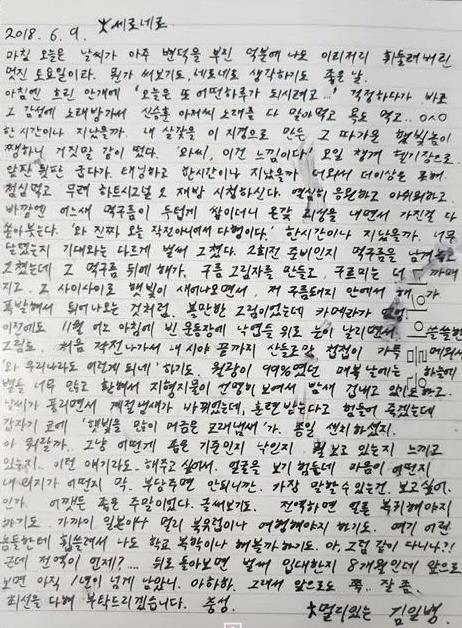 2018. 6. 9. 세로네로
마침 오늘은 날씨가 아주 변덕을 부린 덕분에 나도 이리저리 휘둘려버린
멋진 토요일이라. 뭔가 써보기도, 네로네로 생각하기도 좋은 날.
아침엔 흐린 안개에 '오늘은 또 어떤하루가 되시려고...' 걱정하다가 바로
그 감성에 노래방가서 신승훈 아저씨 노래를 다 잡아먹고 목도 먹고.. 0^0
한시간이나 지났을까. 내 살갗을 이 지경으로 만든 그 따가운 햇빛놈이
쨍하니 거짓말 같이 떴다. 와씨, 이건 느낌이다! 요일 챙겨 연기장으로.
앞판 뒤판 굽다가. 태닝하고 한시간이나 지났을까 더워서 더이상은 못해.
점심먹고 무려 하트시그널 2 재방 시청하신다. 열심히 응원하고 아쉬워하고.
바깥엔 어느새 먹구름이 두텁게 쌓이더니 온갖 괴성을 내면서 가진걸 다
쏟아붓는다. '와 진짜 오늘 작전아니여서 다행이다.' 한시간이나 지났을까. 너무
달렸는지 기대와는 다르게 벌써 그쳤다. 2회전 준비인지 먹구름을 남겨놓고
그쳤는데 그 먹구름 뒤에 해가. 구름 그림자를 만들고, 구르미는 더 까매
지고. 그 사이사이로 햇빛이 새어나오면서, 저 구름돼지 안에서 해가
폭발해서 튀어나오는 것처럼. 볼만한 그림이었는데 카메라가 없
이전에도 11월 어느 아침에 빈 운동장에 낙엽들 위로 눈이 날리면서 쓸쓸한
그림도. 처음 작전나가서 내 시야 끝까지 산들로만 첩첩이 가득 메워서
'와 우리나라도 이렇게 되네' 하기도. 월광이 99%였던 매복 날에는 하늘에
별들 너무 많고 환해서 지형지물이 선명히 보여서 밤새 겁내고 있기도하고.
날씨가 풀리면서 계절냄새가 바뀌었는데, 훈련 받는다고 힘들어 죽겠는데
갑자기 코에 '햇빛을 많이 머금은 모래냄새'가. 종일 센치하셨지.
아 뭐랄까. 그냥 어떻게 좋은 기준인지 나인지 뭘 보고 있는지 느끼고
있는지. 이런 얘기라도.. 해주고 싶어서. 얼굴을 보기 힘들데 마음이 어떤지
내 의지가 어떤지 막. 부담주면 안되니깐. 가장 말할수 있는건. 보고싶어.
인가. 어쨌든 좋은 주말이었다. 글써보기도. 전역하면 얼른 복귀해야지
하기도. 가까이 일본이나 멀리 북유럽이나 여행해야지 하기도. 여기 어린
놈들한테 휩쓸려서 나도 학교 복학이나 해볼까 하기도. 아, 그럼 같이 다니나?!
근데 전역이 언제?.... 뒤로 돌아보면 벌써 입대한지 8개월인데 앞으로
보면 아직 1년이 넘게 남았니. 아하하. 그래서 앞으로도 쭉.. 잘 좀.
최선을 다해 부탁드리겠습니다. 충성.
멀리있는 김일병.